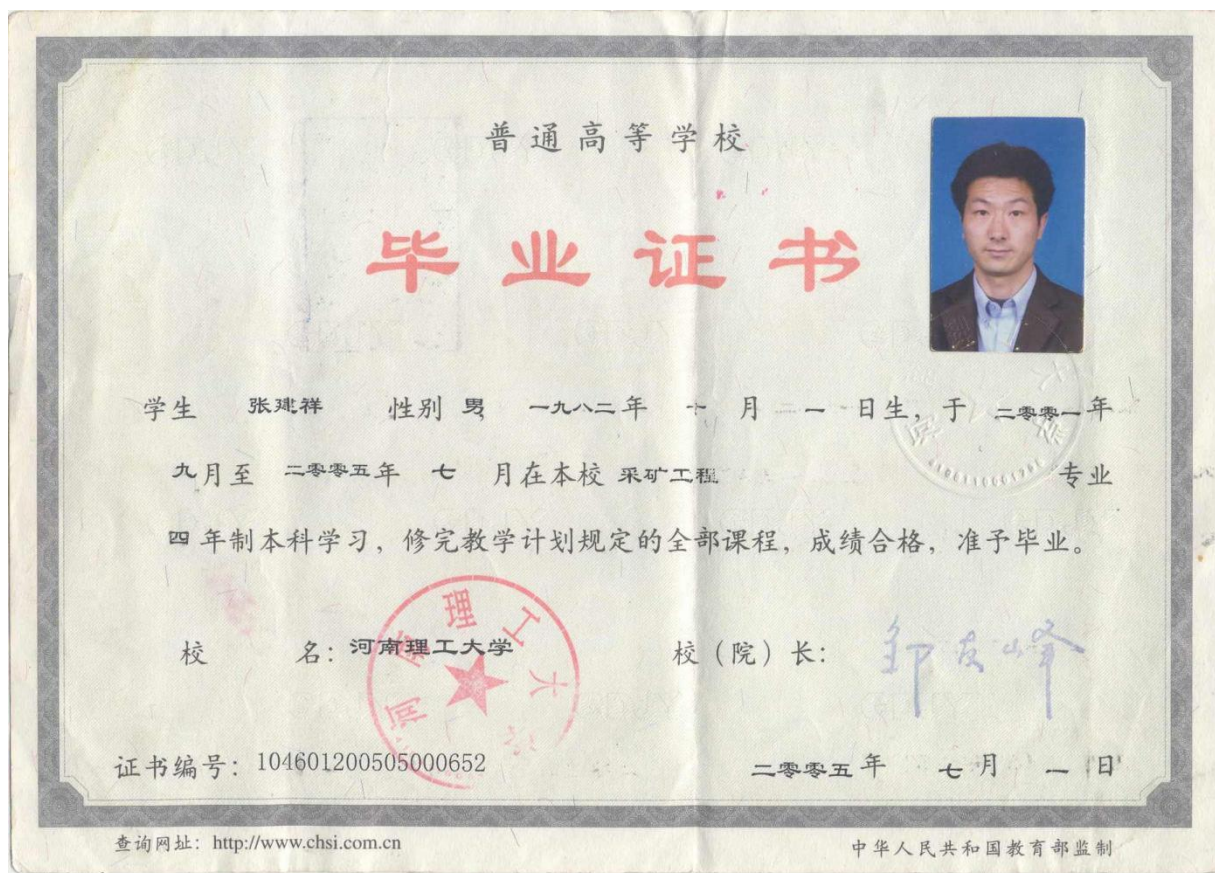 普通高等学校
毕业证书
学生 张建祥 性别 男 一九八二年 十 月 二一 日生，于 二零零一年
九月至 二零零五年 七 月在本校 采矿工程 专业
四 年制本科学习，修完教学计划规定的全部课程，成绩合格，准予毕业。
校 名：河南理工大学 校（院）长：邹友峰
河南理工大学
证书编号：104601200505000652 二零零五年 七月 一 日
查询网址：http://www.chsi.com.cn 中华人民共和国教育部监制